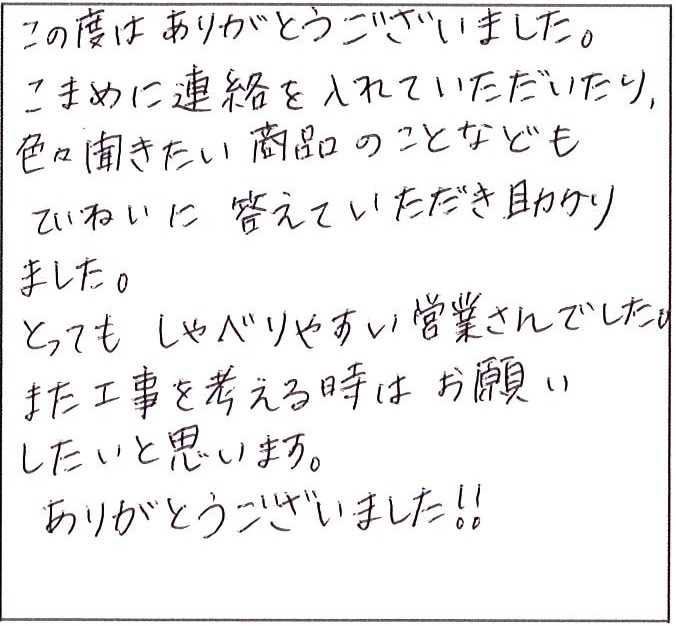 この度は ありがとうございました。
こまめに連絡を入れていただいたり,
色々聞きたい商品のことなども
ていねいに 答えていただき助かり
ました。
とっても しゃべりやすい営業さんでした。
また工事を考える時は お願い
したいと思います。
ありがとうございました!!